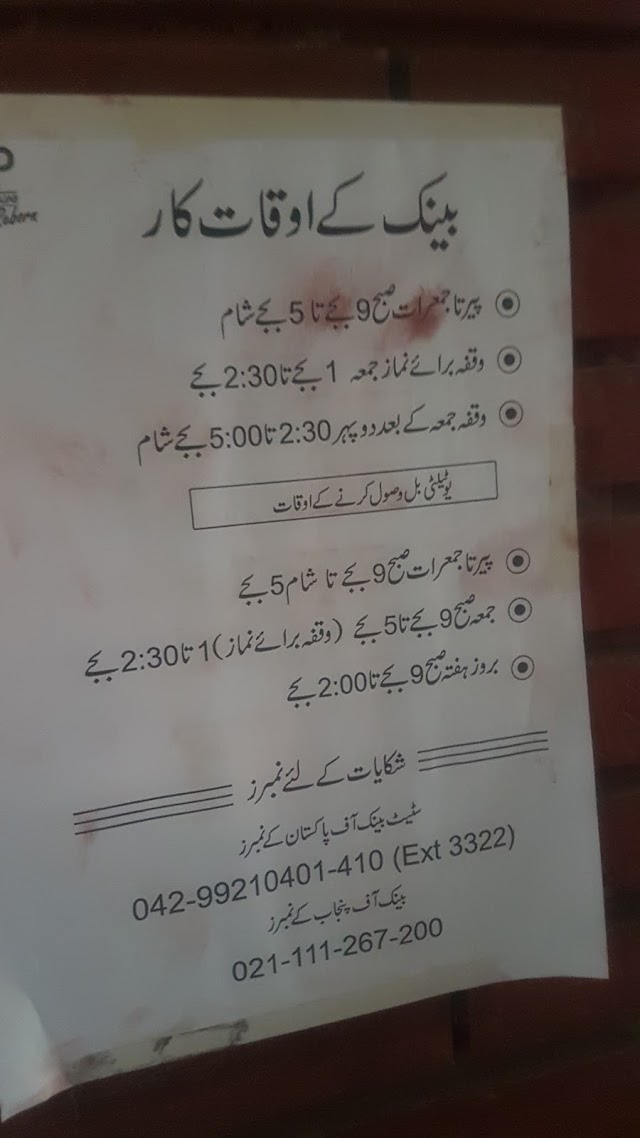 Reborn
بینک کے اوقات کار
پیر تا جمعرات صبح 9 بجے تا 5 بجے شام
وقفہ برائے نماز جمعہ 1 بجے تا 2:30 بجے
وقفہ جمعہ کے بعد دوپہر 2:30 تا 5:00 بجے شام
یوٹیلٹی بل وصول کرنے کے اوقات
پیر تا جمعرات صبح 9 بجے تا شام 5 بجے
جمعہ صبح 9 بجے تا 5 بجے (وقفہ برائے نماز) 1 تا 2:30 بجے
بروز ہفتہ صبح 9 بجے تا 2:00 بجے
شکایات کے لئے نمبرز
سٹیٹ بینک آف پاکستان کے نمبرز
042-99210401-410 (Ext 3322)
بینک آف پنجاب کے نمبرز
021-111-267-200